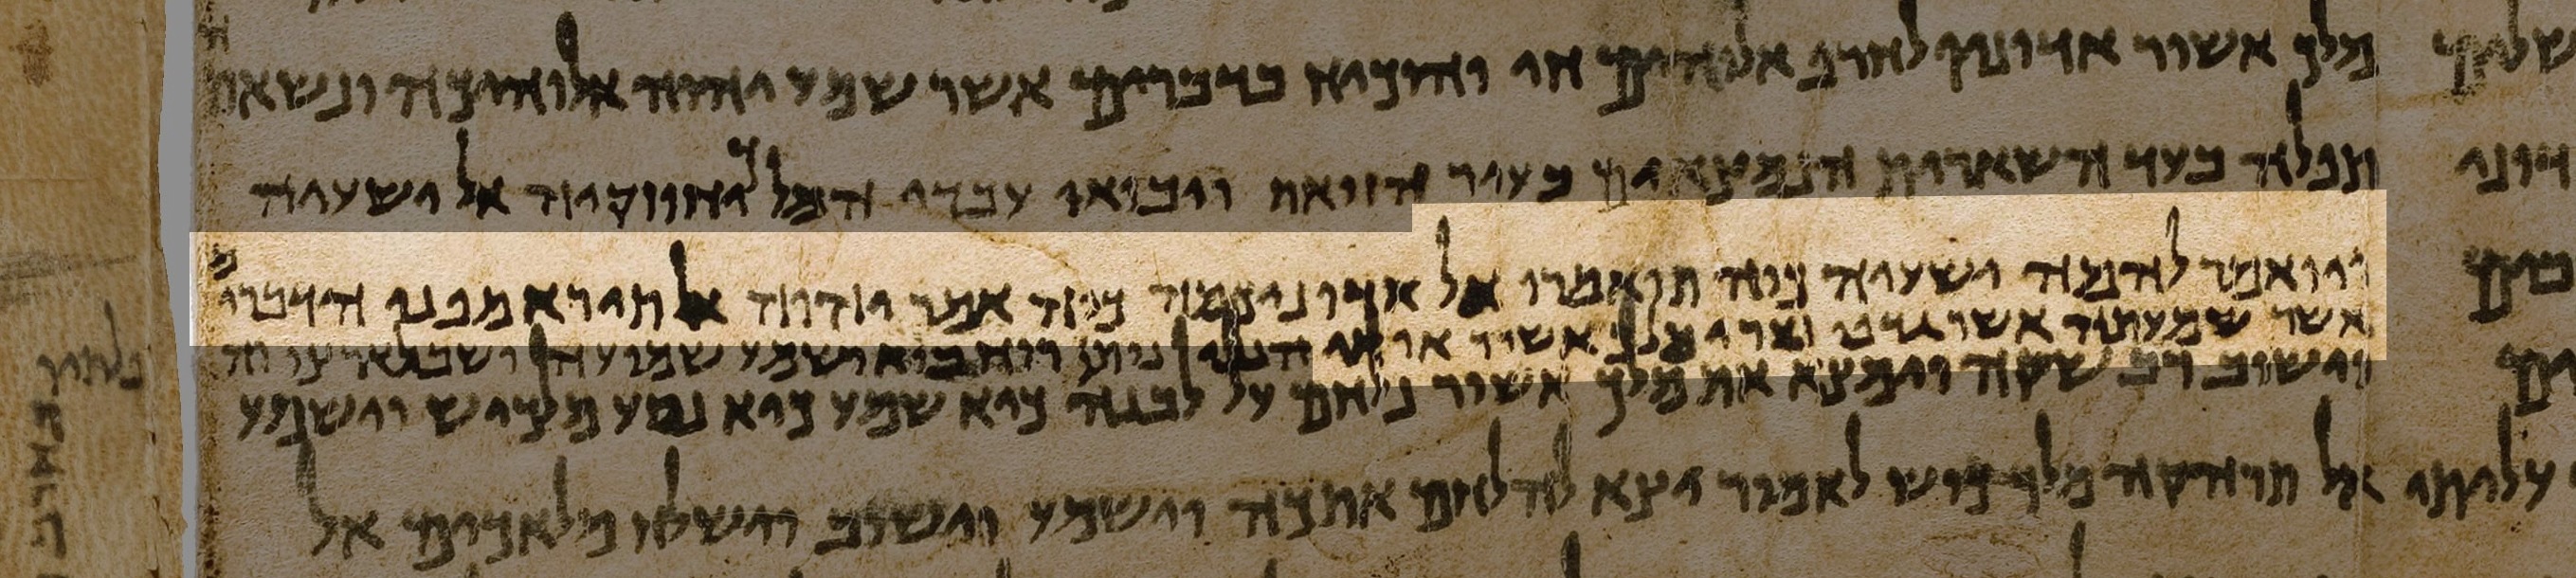 מלך אשור אדוניו לחרף אלהים חי והוכיח בדברים אשר שמע יהוה אלוהיכה ונשאתה
תפלה בעד השארית הנמצאים בעיר הזואת ויבואו עבדי המלך יחוזקיה אל ישעיה
ויואמר להמה ישעיה כוה תואמרו אל אדוניכמה כוה אמר יהוה אל תירא מפני הדברים
אשר שמעתה אשר גדפו נערי מלך אשור אותי הנני נותן רוח בוא ושמע שמועה ושב לארצו
וישוב רב שקה וימצא את מלך אשור נלחם על לבנה כיא שמע כיא נסע מלכיש וישמע
אל תרהקה מלך כוש לאמור יצא להלחם אתכה וישמע וישוב וישלח מלאכים אל